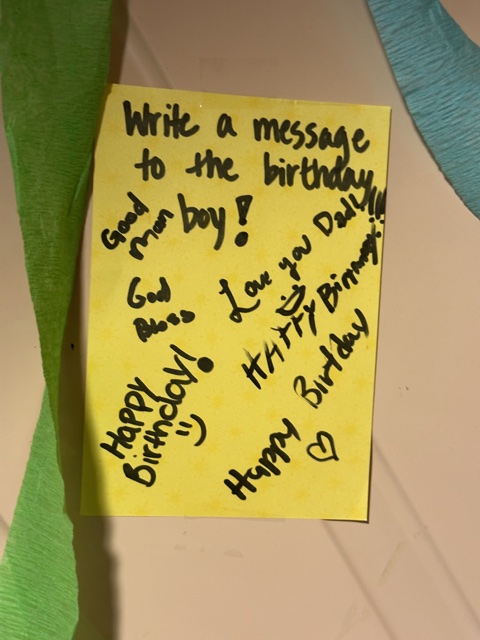 Write a message
to the birthday
boy!
Good
Man
Love you Dad!!!
God
Bless
HAPPY Birthday!!
Happy
Birthday!
Happy Birtday